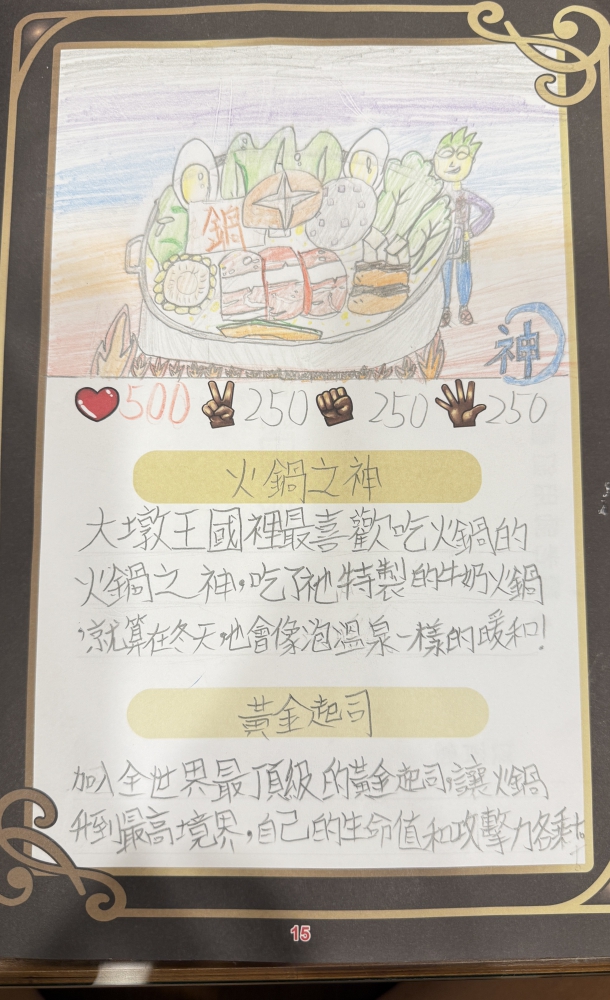 鍋
神
500 250 250 250
火鍋之神
大墩王國裡最喜歡吃火鍋的
火鍋之神，吃了祂特製的牛奶火鍋
，就算在冬天，也會像泡溫泉一樣的暖和！
黃金起司
加入全世界最頂級的黃金起司，讓火鍋
升到最高境界，自己的生命值和攻擊力各乘
15